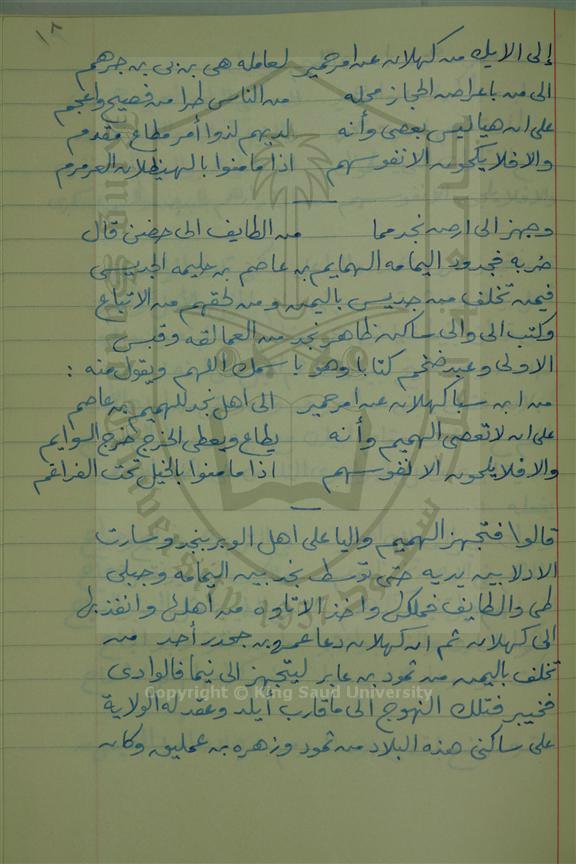 ١٨
إلى الايك من كهلان عن امر حمير لعامله هي بن بي بن جرهم
الى من باعراض الحجاز محله من الناس طرا من فصيح واعجم
على ان هيا ليس يعصى وأنه لديهم لذوا أمر مطاع مقدم
والا فلا يلحون الا نفوسهم اذا ما منوا بالهيظلان العرمرم
وجهز الى ارض نجد مما من الطايف الى حضن قال
ضربه فحدود اليمامه الهمايم بن عاصم بن حليمه الجديسى
فيمن تخلف من جديس باليمن ومن لحقهم من الاتباع
وكتب الى والى ساكن ظاهر نجد من العمالقه وقبس
الاولى وعبد ضخم كتابا وهو باسمك اللهم ويقول منه :
من ابن سبا كهلان عن امر حمير الى اهل نجد للهميم بن عاصم
على ان لا تعصى الهميم وأنه يطاع ويعطى الخرج خرج السوايم
والا فلا يلحون الا نفوسهم اذا ما منوا بالخيل تحت الضراغم
قالوا فتجهز الهميم واليا على اهل الوبر بنجد وسارت
الادلا بين يديه حتى توسط نجد بين اليمامه وجبلى
طى والطايف فملكها واخذ الاتاوه من أهلها وانفذ بها
الى كهلان ثم ان كهلان دعا عمرو بن جحدر أحد من
تخلف باليمن من ثمود بن عابر ليتجهز الى تيما فالوادى
فخيبر فتلك النهوج الى ما قارب أيله وعقد له الولاية
على ساكنى هذه البلاد من ثمود وزهره بن عمليق وكان
Copyright © King Saud University